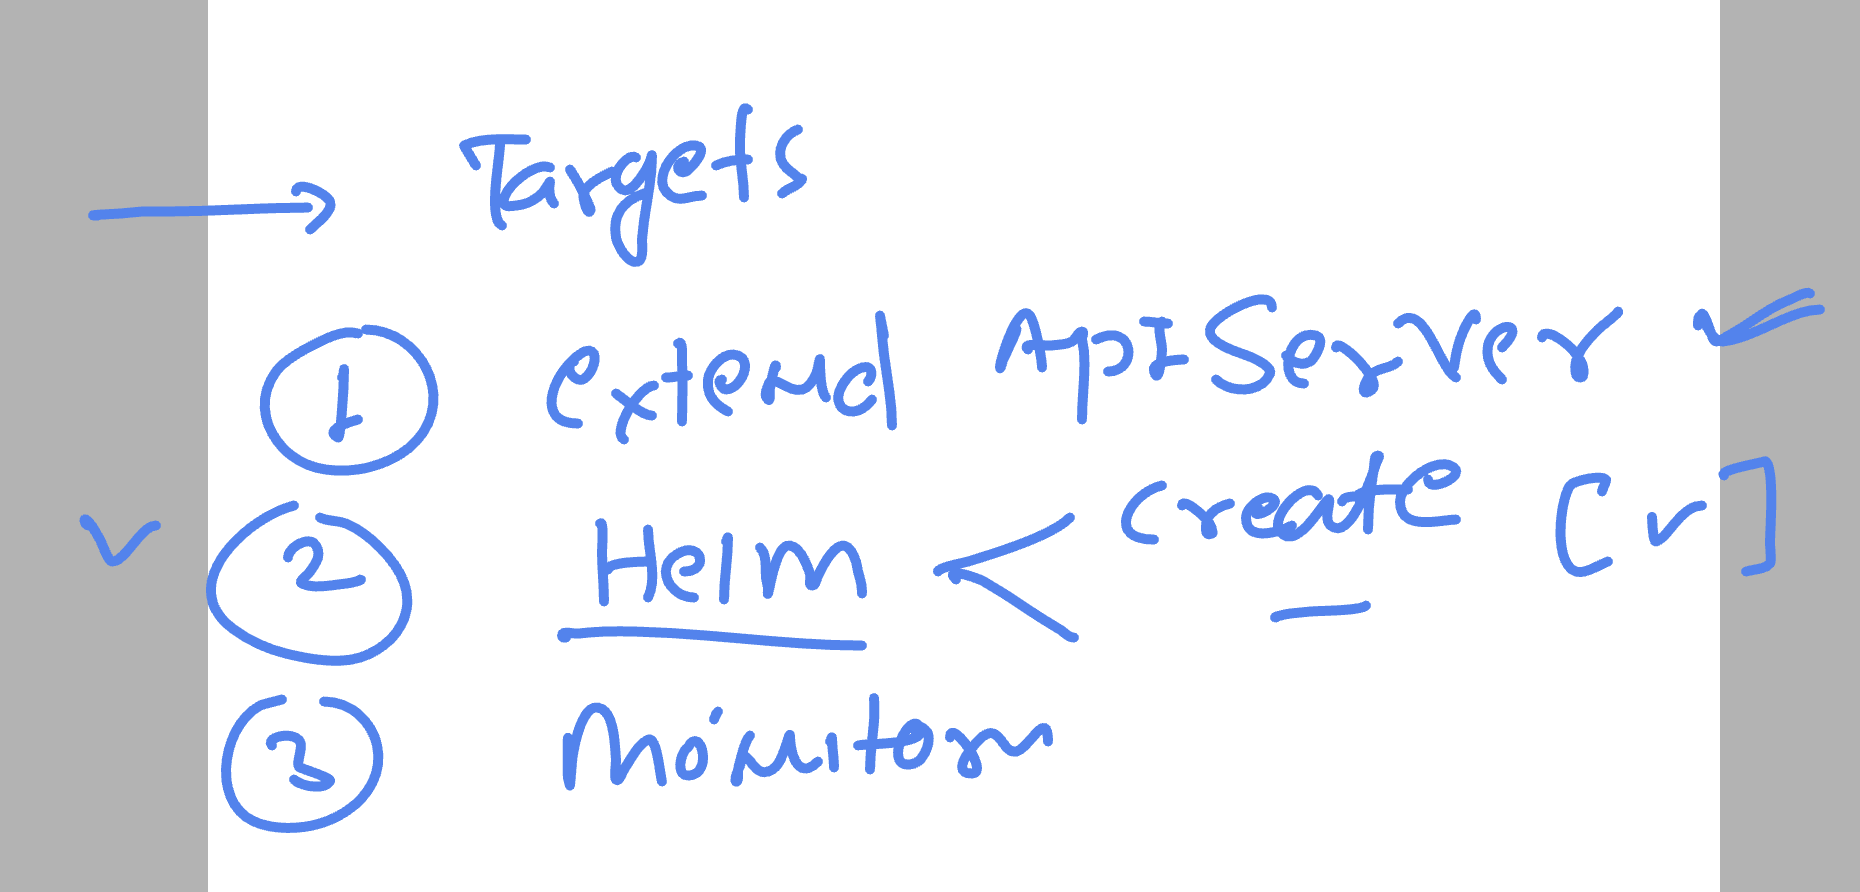 → Targets
1 extend ApI Server ✓
✓ 2 Helm < create [✓]
3 Monitor